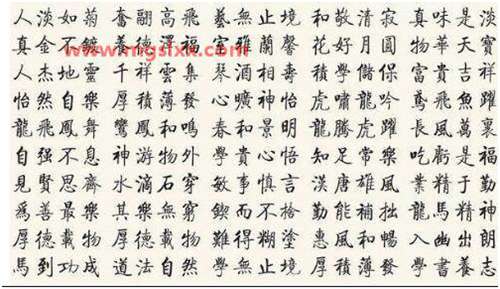 人淡如菊 奮翮高飛 藝無止境 和敬清寂 真味是淡
真金不鍍 養德澤福 室雅蘭馨 花好月圓 物華天寶
www.mgsfxx.com
人杰地靈 千祥雲集 琴酒相壽 學儲保 富貴吉祥
怡然自樂 厚積薄發 心曠神怡 虎嘯龍吟 鳶飛魚躍
龍飛鳳舞 鸞鳳和鳴 春和景明 龍騰虎躍 長風萬裏
自强不息 神游物外 學貴心悟 知足常樂 吃虧是福
見賢思齊 水滴石穿 敏事慎言 漢唐雄風 業精于勤
爲善最樂 其樂無窮 鍥而不捨 勤能補拙 龍馬精神
厚德載物 厚德載物 難得糊塗 惠風和暢 入幽出朗
馬到功成 道法自然 學無止境 厚積薄發 學書養志